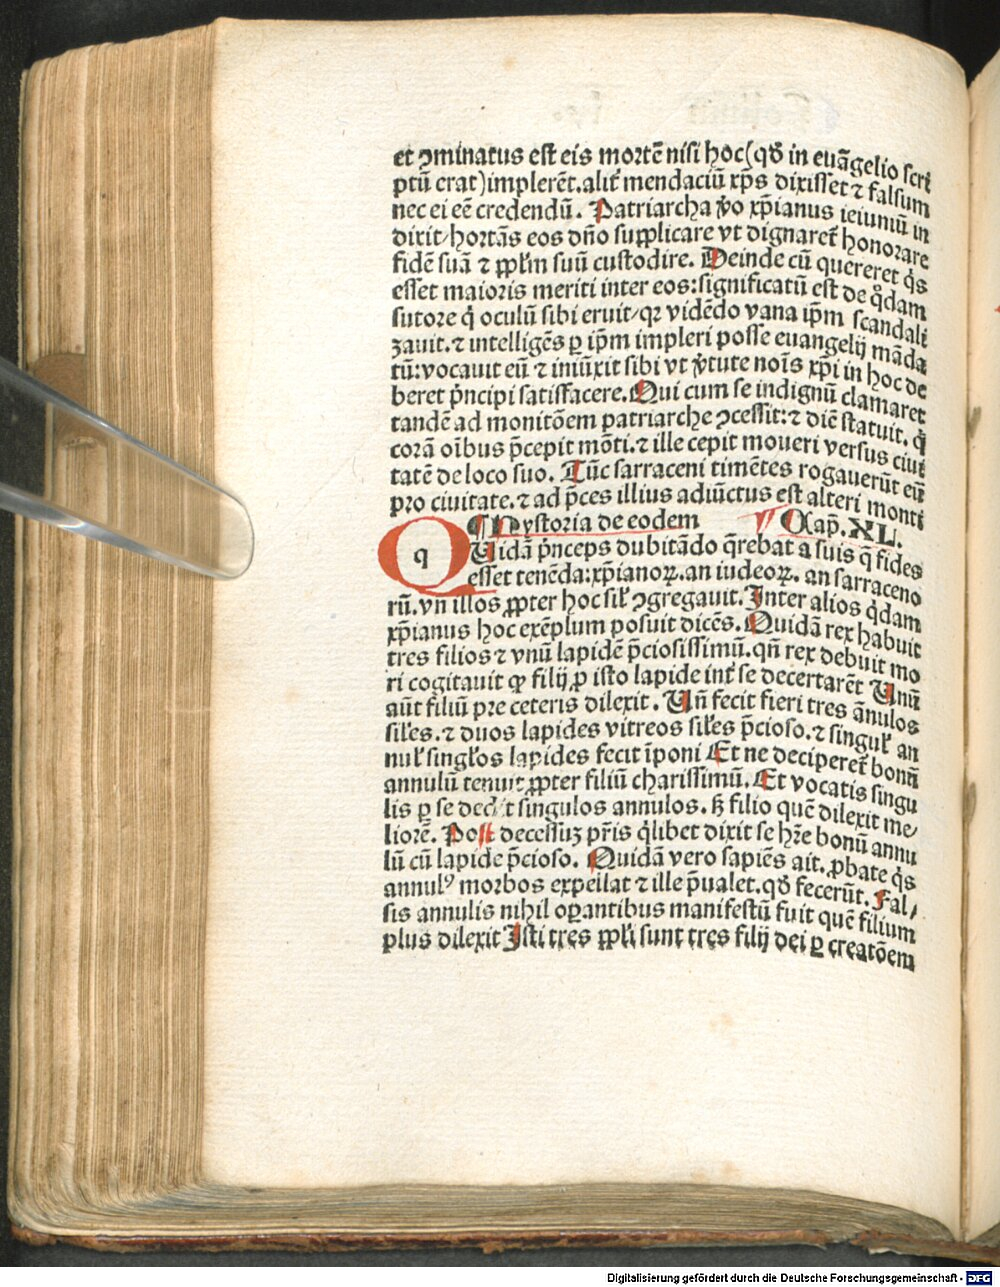 et ꝯminatus est eis mortē nisi hoc(qđ in euāgelio scri
ptū erat)implerēt.alit̃ mendaciū xp̄s dixisset ⁊ falsum
nec ei eē credendū. Patriarcha ꝟo xp̄ianus ieiuniū in
dixit/hortās eos dn̄o supplicare vt dignaret̃ honorare
fidē suā ⁊ ppl̃m suū custodire. Deinde cū quereret q̇s
esset maioris meriti inter eos:significatū est de q̊dam
sutore q̇ oculū sibi eruit/qꝛ vidēdo vana ip̄m scandali
zauit.⁊ intelligēs ꝑ ip̄m impleri posse euangelij māda
tū:vocauit eū ⁊ iniūxit sibi vt ꝟtute noīs xp̄i in hoc de
beret p̄ncipi satisfacere. Qui cum se indignū clamaret
tandē ad monitōem patriarche ꝯcessit:⁊ diē statuit. q̇
corā oībus p̄cepit mōti.⁊ ille cepit moueri versus ciui
tatē de loco suo. Tūc sarraceni timētes rogauerūt eū
pro ciuitate.⁊ ad p̄ces illius adiūctus est alteri monti
¶ Hystoria de eodem Cap̄. XL.
q Uidā p̄nceps dubitādo q̄rebat a suis q̄ fides
esset tenēda:xp̄ianoꝝ.an iudeoꝝ. an sarraceno
rū.vn̄ illos ꝓpter hoc sil̃ ꝯgregauit. Inter alios q̇dam
xp̄ianus hoc exēplum posuit dicēs. Quidā rex habuit
tres filios ⁊ vnū lapidē p̄ciosissimū.qn̄ rex debuit mo
ri cogitauit ꝙ filij ꝓ isto lapide int̃ se decertarēt Unū
aūt filiū pre ceteris dilexit. Un̄ fecit fieri tres ānulos
sil̃es.⁊ duos lapides vitreos sil̃es p̄cioso.⁊ singul̃ an
nul̃ singl̃os lapides fecit īponi Et ne deciperet̃ bonū
annulū tenuit ꝓpter filiū charissimū. Et vocatis singu
lis ꝑ se dedit singulos annulos. ẜ filio quē dilexit me/
liorē. Post decessuꝫ pr̄is q̇libet dixit se hr̄e bonū annu
lū cū lapide p̄cioso. Quidā vero sapiēs ait. ꝓbate q̇s
annulꝰ morbos expellat ⁊ ille p̄ualet.qđ fecerūt. Fal/
sis annulis nihil oꝑantibus manifestū fuit quē filium
plus dilexit Isti tres ppl̃i sunt tres filij dei ꝑ creatōem
Digitalisierung gefördert durch die Deutsche Forschungsgemeinschaft - DFG